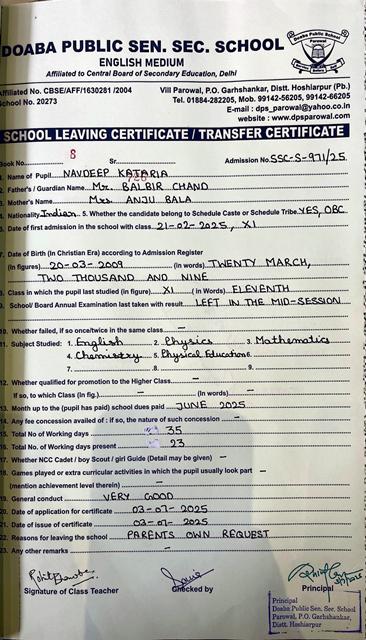 DOABA PUBLIC SEN. SEC. SCHOOL
ENGLISH MEDIUM
Affiliated to Central Board of Secondary Education, Delhi
Affiliated No. CBSE/AFF/1630281 /2004
School No. 20273
Vill Parowal, P.O. Garhshankar, Distt. Hoshiarpur (Pb.)
Tel. 01884-282205, Mob. 99142-56205, 99142-66205
E-mail : dps_parowal@yahoo.co.in
website : www.dpsparowal.com
SCHOOL LEAVING CERTIFICATE / TRANSFER CERTIFICATE
Book No. 8 Sr. Admission No. SSC-S-971/25
1. Name of Pupil NAVDEEP KATARIA
2. Father's / Guardian Name Mr. BALBIR CHAND
3. Mother's Name Mrs. ANJU BALA
4. Nationality Indian 5. Whether the candidate belong to Schedule Caste or Schedule Tribe. YES, OBC
6. Date of first admission in the school with class. 21-02-2025, XI
7. Date of Birth (In Christian Era) according to Admission Register
(In figures) 20-03-2009 (in words) TWENTY MARCH,
TWO THOUSAND AND NINE
8. Class in which the pupil last studied (in figure) XI ( in Words) ELEVENTH
9. School/ Board Annual Examination last taken with result LEFT IN THE MID-SESSION
10. Whether failed, if so once/twice in the same class –
11. Subject Studied: 1. English 2. Physics 3. Mathematics
4. Chemistry 5. Physical Education 6.
7. 8. 9.
12. Whether qualified for promotion to the Higher Class –
If so, to which Class (In fig.) – (In words) –
13. Month up to the (pupil has paid) school dues paid JUNE 2025
14. Any fee concession availed of : if so, the nature of such concession –
15. Total No of Working days 35
16. Total No. of Working days present 23
17. Whether NCC Cadet / boy Scout / girl Guide (Detail may be given) –
18. Games played or extra curricular activities in which the pupil usually took part –
(mention achievement level therein) –
19. General conduct VERY GOOD
20. Date of application for certificate 03-07-2025
21. Date of issue of certificate 03-07-2025
22. Reasons for leaving the school PARENTS OWN REQUEST
23. Any other remarks –
Signature of Class Teacher
Checked by
Principal
Principal
Doaba Public Sen. Sec. School
Parowal, P.O. Garhshankar,
Distt. Hoshiarpur